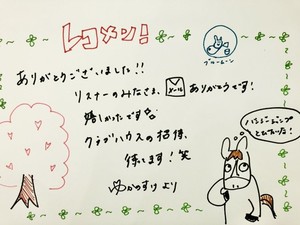 レコメン!
ブルームーン
ありがとうございました!!
リスナーのみなさま、メール ありがとうです!
嬉しかったです
クラブハウスの招待、
待ってます!笑
かのすけ より
バンジージャンプ
とびたいな!